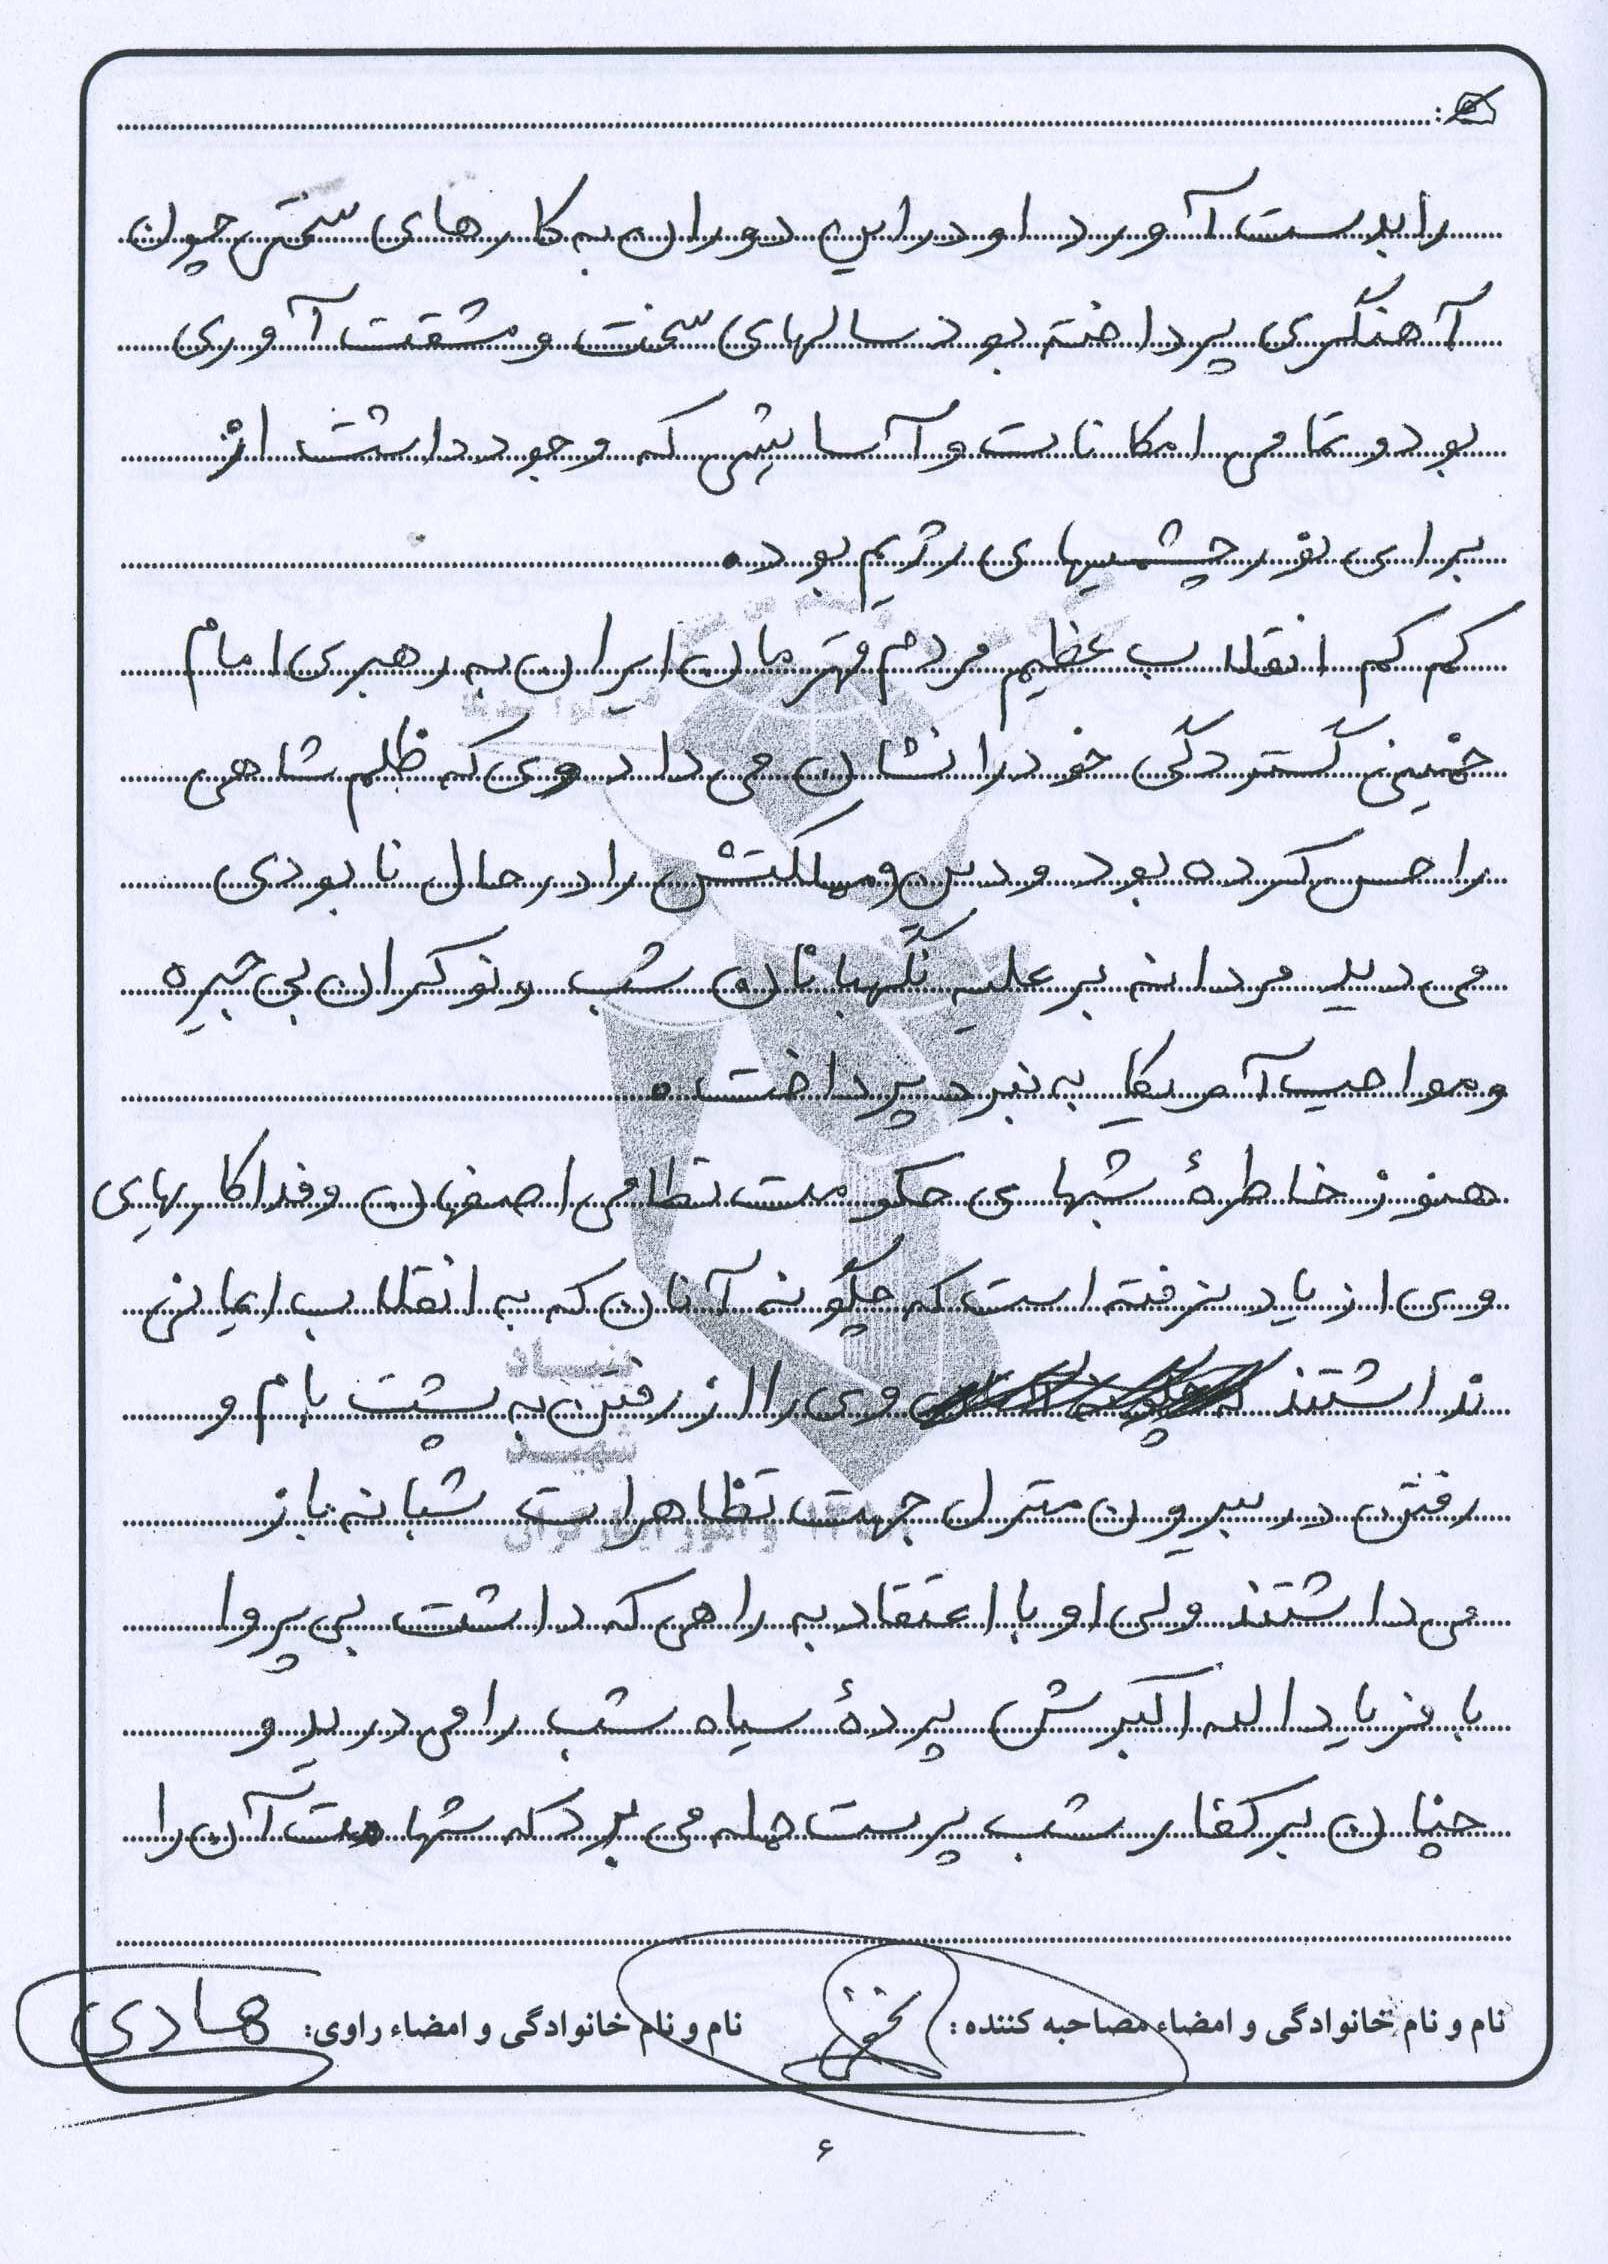 را بدست آورد او در این دوران به کارهای سختی چون
آهنگری پرداخته بود سالهای سخت و مشقت آوری
بود و تمامی امکانات و آسایشی که وجود داشت از
برای نور چشمیهای رژیم بود.
کم کم انقلاب عظیم مردم قهرمان ایران به رهبری امام
خمینی گستردگی خود را نشان می داد وی که ظلم شاهی
را حس کرده بود و دین و مملکتش را در حال نابودی
می دید مردانه بر علیه نگهبانان شب و نوکران بی جیره
و مواجب آمریکا به نبرد پرداخت.
هنوز خاطرهٔ شبهای حکومت نظامی اصفهان و فداکاریهای
وی از یاد نرفته است که چگونه آنان که به انقلاب ایمانی
نداشتند وی را از رفتن به پشت بام و
رفتن در بیرون منزل جهت تظاهرات شبانه باز
می داشتند ولی او با اعتقاد به راهی که داشت بی پروا
با فریاد الله اکبرش پردهٔ سیاه شب را می درید و
چنان بر کفار شب پرست حمله می برد که شهامت آن را
نام و نام خانوادگی و امضاء مصاحبه کننده: نام و نام خانوادگی و امضاء راوی: هادی
۶
بنیاد
شهید
و امور ایثارگران